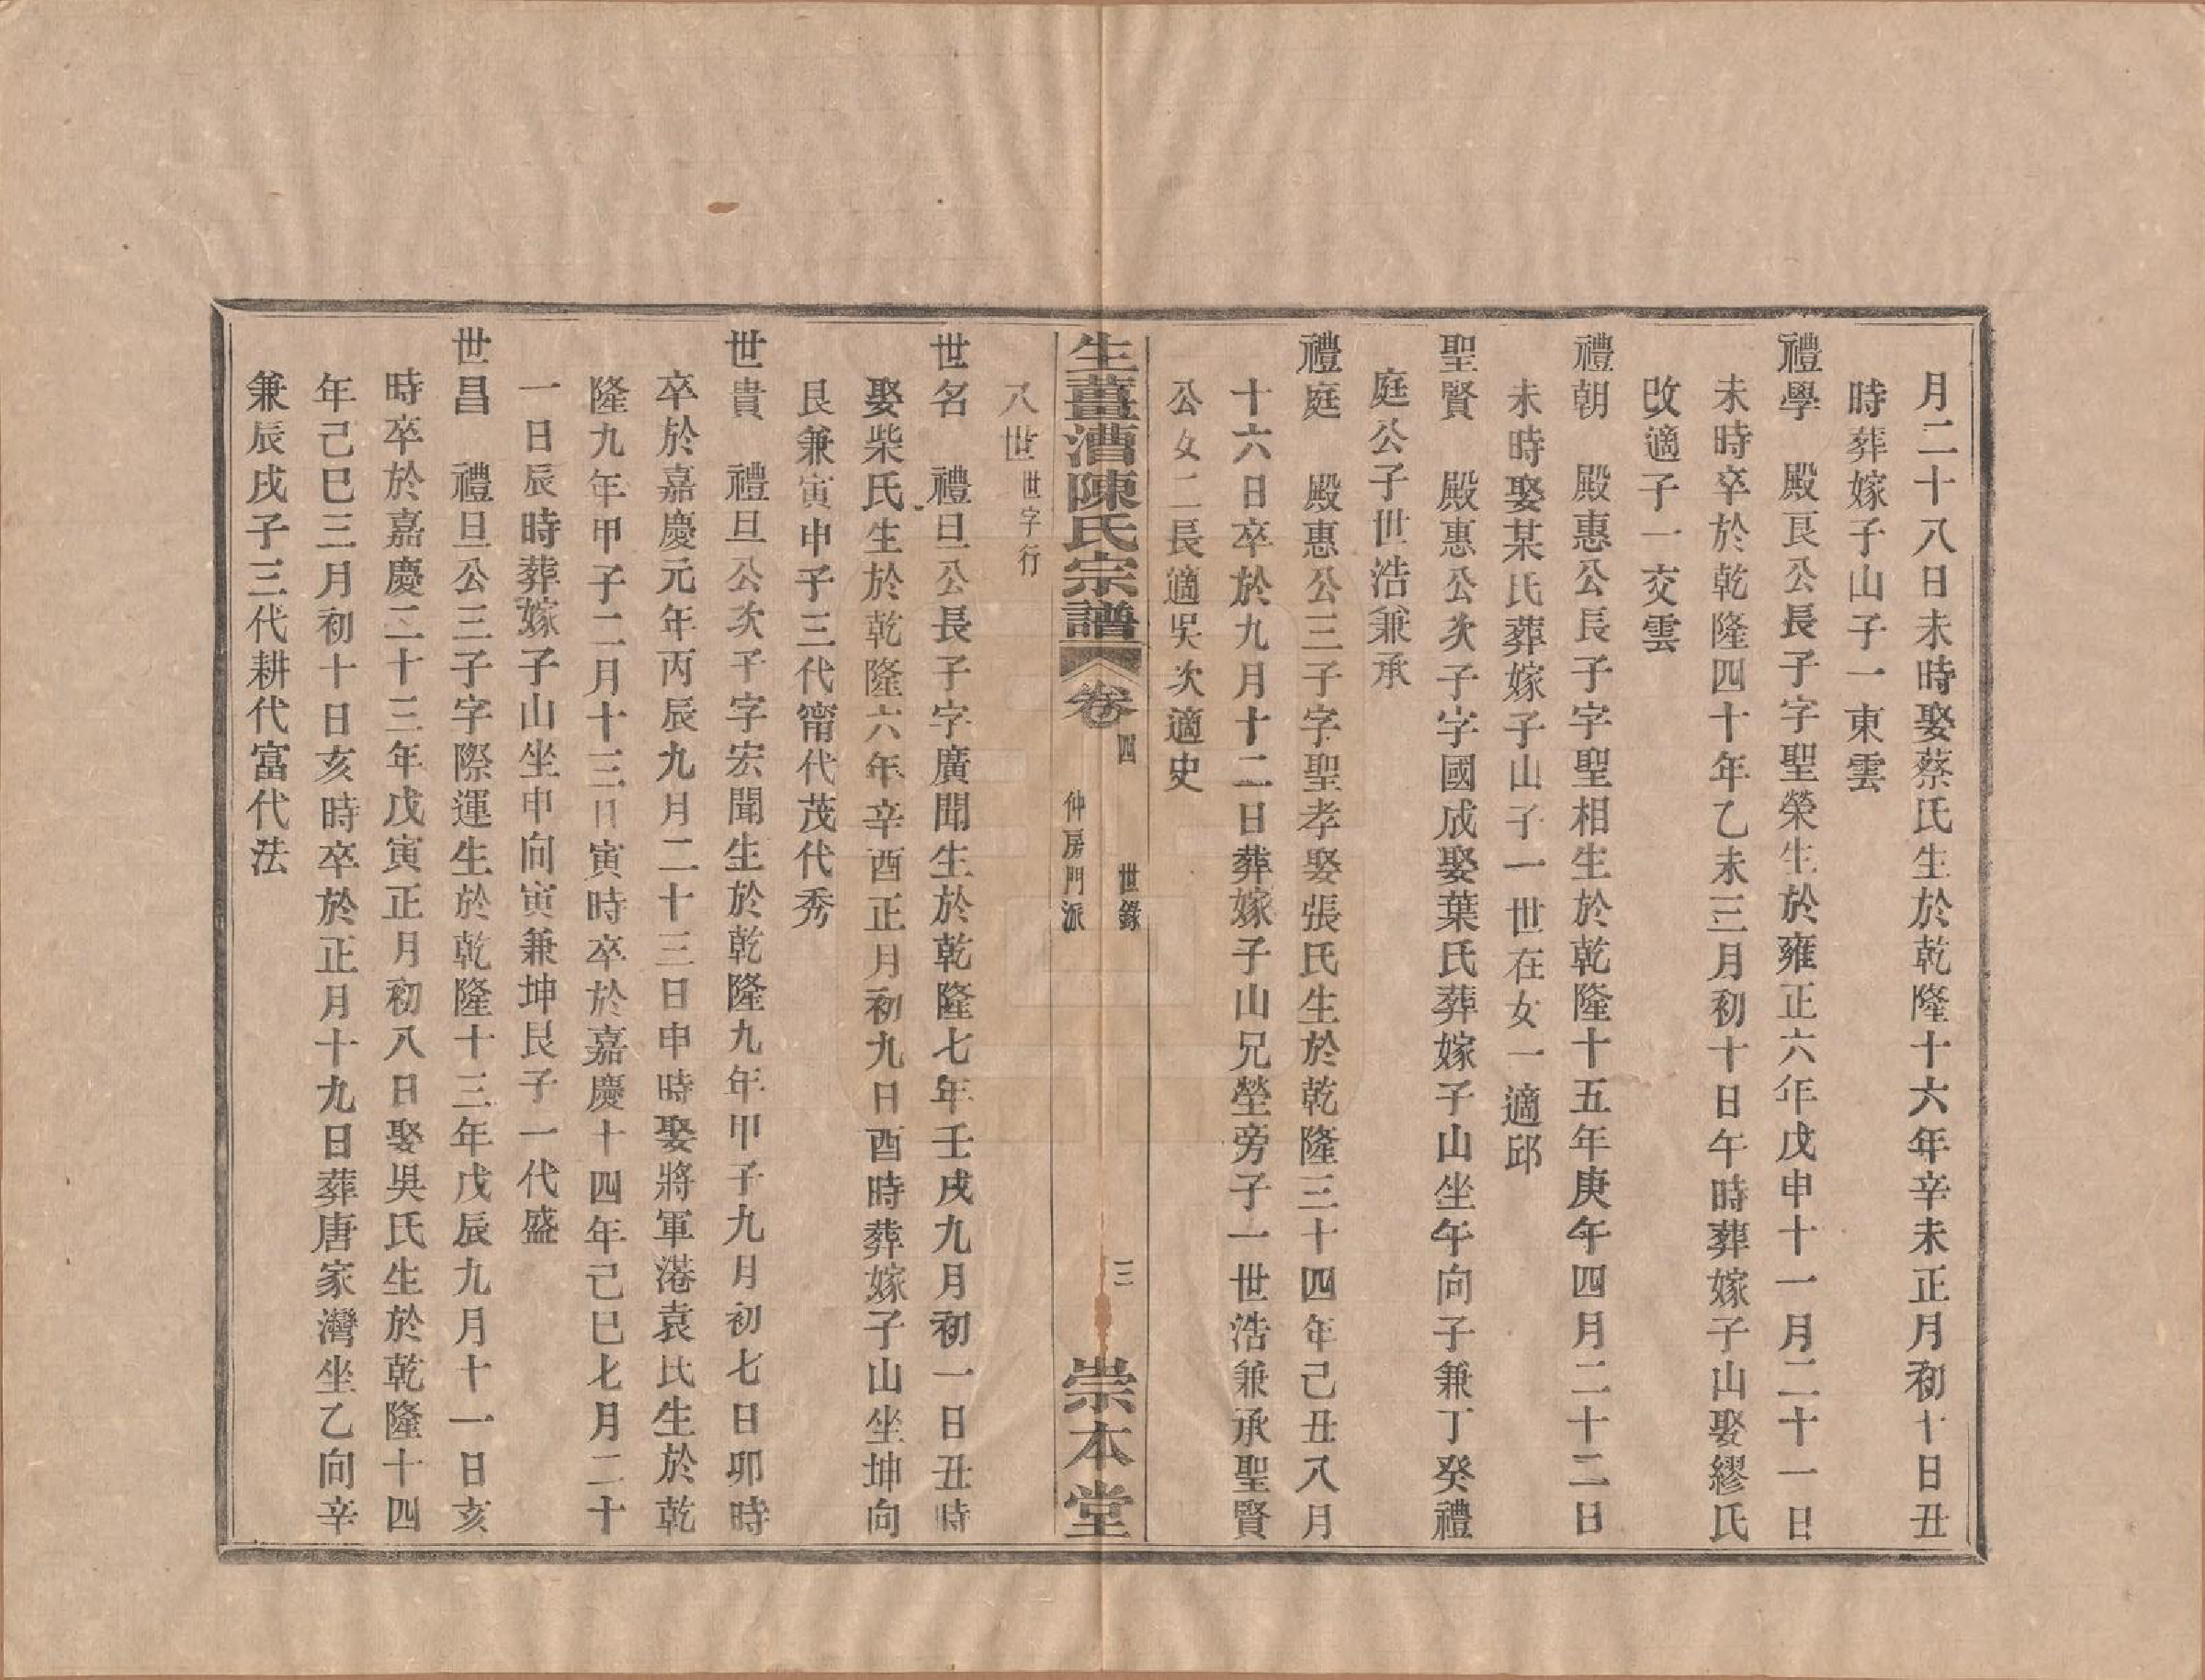 月二十八日未時娶蔡氏生於乾隆十六年辛未正月初十日丑
時葬嫁子山子一東雲
禮學　殿艮公長子字聖榮生於雍正六年戊申十一月二十一日
未時卒於乾隆四十年乙未三月初十日午時葬嫁子山娶繆氏
改適子一交雲
禮朝　殿惠公長子字聖相生於乾隆十五年庚午四月二十二日
未時娶某氏葬嫁子山子一世在女一適邱
聖賢　殿惠公次子字國成娶葉氏葬嫁子山坐午向子兼丁癸禮
庭公子世浩兼承
禮庭　殿惠公三子字聖孝娶張氏生於乾隆三十四年己丑八月
十六日卒於九月十二日葬嫁子山兄塋旁子一世浩兼承聖賢
公女二長適吳次適史
生薑漕陳氏宗譜　卷四　世錄　仲房門派　三　崇本堂
八世世字行
世名　禮旦公長子字廣聞生於乾隆七年壬戌九月初一日丑時
娶柴氏生於乾隆六年辛酉正月初九日酉時葬嫁子山坐坤向
艮兼寅申子三代甯代茂代秀
世貴　禮旦公次子字宏聞生於乾隆九年甲子九月初七日卯時
卒於嘉慶元年丙辰九月二十三日申時娶將軍港袁氏生於乾
隆九年甲子二月十三日寅時卒於嘉慶十四年己巳七月二十
一日辰時葬嫁子山坐申向寅兼坤艮子一代盛
世昌　禮旦公三子字際運生於乾隆十三年戊辰九月十一日亥
時卒於嘉慶二十三年戊寅正月初八日娶吳氏生於乾隆十四
年己巳三月初十日亥時卒於正月十九日葬唐家灣坐乙向辛
兼辰戌子三代耕代富代法